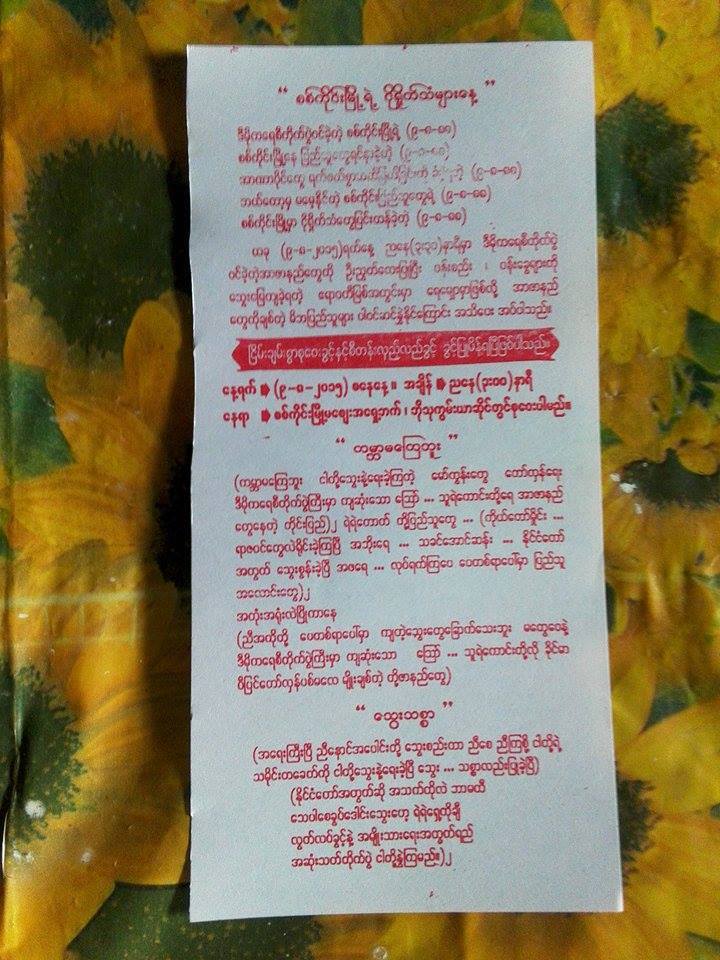 “ စစ်ကိုင်းမြို့ရဲ့ ငိုရှိုက်သံများနေ့ ”
ဒီမိုကရေစီတိုက်ပွဲဝင်ခဲ့တဲ့ စစ်ကိုင်းမြို့ရဲ့ (၉-၈-၈၈)
စစ်ကိုင်းမြို့နေ ပြည်သူတွေရင်နာခဲ့တဲ့ (၉-၈-၈၈)
အာဏာပိုင်တွေ ရက်စက်စွာ (၉-၈-၈၈)
ဘယ်တော့မှ မမေ့နိုင်တဲ့ စစ်ကိုင်းပြည်သူတွေရဲ့ (၉-၈-၈၈)
စစ်ကိုင်းမြို့မှာ ငိုရှိုက်သံတွေပြင်းထန်ခဲ့တဲ့ (၉-၈-၈၈)
ယခု (၉-၈-၂၀၁၅)ရက်နေ့ ညနေ(၃:၃၀)နာရီမှာ ဒီမိုကရေစီတိုက်ပွဲ
ဝင်ခဲ့တဲ့အာဇာနည်တွေကို ဦးညွှတ်လေးပြုပြီး ပန်းစည်း ၊ ပန်းခွေများကို
သွေးမြေကျခဲ့ရတဲ့ ဧရာဝတီမြစ်အတွင်းမှာ ရေမျှောမှာဖြစ်လို့ အာဇာနည်
တွေကိုချစ်တဲ့ မိဘပြည်သူများ ပါဝင်ဆင်နွှဲနိုင်ကြောင်း အသိပေး အပ်ပါသည်။
ငြိမ်းချမ်းစွာစုဝေးခွင့်နှင့်စီတန်းလှည့်လည်ခွင့် ခွင့်ပြုမိန့်ရပြီဖြစ်ပါသည်။
နေ့ရက် ➡ (၉-၈-၂၀၁၅) စနေနေ့ ။ အချိန် ➡ ညနေ(၃:၀၀)နာရီ
နေရာ ➡ စစ်ကိုင်းမြို့မဈေးအရှေ့ဘက် ၊ ဘိုသုကွမ်းယာဆိုင်တွင်စုဝေးပါမည်။
“ ကမ္ဘာမကြေဘူး ”
(ကမ္ဘာမကြေဘူး ငါတို့သွေးနဲ့ရေးခဲ့ကြတဲ့ မော်ကွန်းတွေ တော်လှန်ရေး
ဒီမိုကရေစီတိုက်ပွဲကြီးမှာ ကျဆုံးသော ဪ ... သူရဲကောင်းတို့ရေ အာဇာနည်
တွေနေတဲ့ တိုင်းပြည်)၂ ရဲရဲတောက် တို့ပြည်သူတွေ ... (ကိုယ်တော်မှိုင်း ...
ရာဇဝင်တွေလဲရိုင်းခဲ့ကြပြီ အဘိုးရေ ... သခင်အောင်ဆန်း ... နိုင်ငံတော်
အတွက် သွေးစွန်းခဲ့ပြီ အဖရေ ... လုပ်ရက်ကြပေ ပေကတစ်ရာပေါ်မှာ ပြည်သူ
အလောင်းတွေ)၂
အတုံးအရုံးလဲပြိုကာနေ
(ညီအကိုတို့ ပေကတစ်ရာပေါ်မှာ ကျတဲ့သွေးတွေခြောက်သေးဘူး မတွေဝေနဲ့
ဒီမိုကရေစီတိုက်ပွဲကြီးမှာ ကျဆုံးသော ဪ ... သူရဲကောင်းတို့လို ခိုင်မာ
ပီပြင်တော်လှန်ပစ်မလေ မျိုးချစ်တဲ့ တို့ဇာနည်တွေ)
“ သွေးသစ္စာ ”
(အရေးကြီးပြီ ညီနောင်အပေါင်းတို့ သွေးစည်းကာ ညီစေ ညီကြစို့ ငါတို့ရဲ့
သမိုင်းတခေတ်ကို ငါတို့သွေးနဲ့ရေးခဲ့ပြီ သွေး ... သစ္စာလည်းပြုခဲ့ပြီ)
(နိုင်ငံတော်အတွက်ဆို အသက်ကိုလဲ ဘာမထီ
သေပါစေခွပ်ဒေါင်းသွေးဟေ့ ရဲရဲရှေ့ကိုချီ
လွတ်လပ်ခွင့်နဲ့ အမျိုးသားရေးအတွက်ရည်
အဆုံးသတ်တိုက်ပွဲ ငါတို့နွှဲကြမည်။)၂